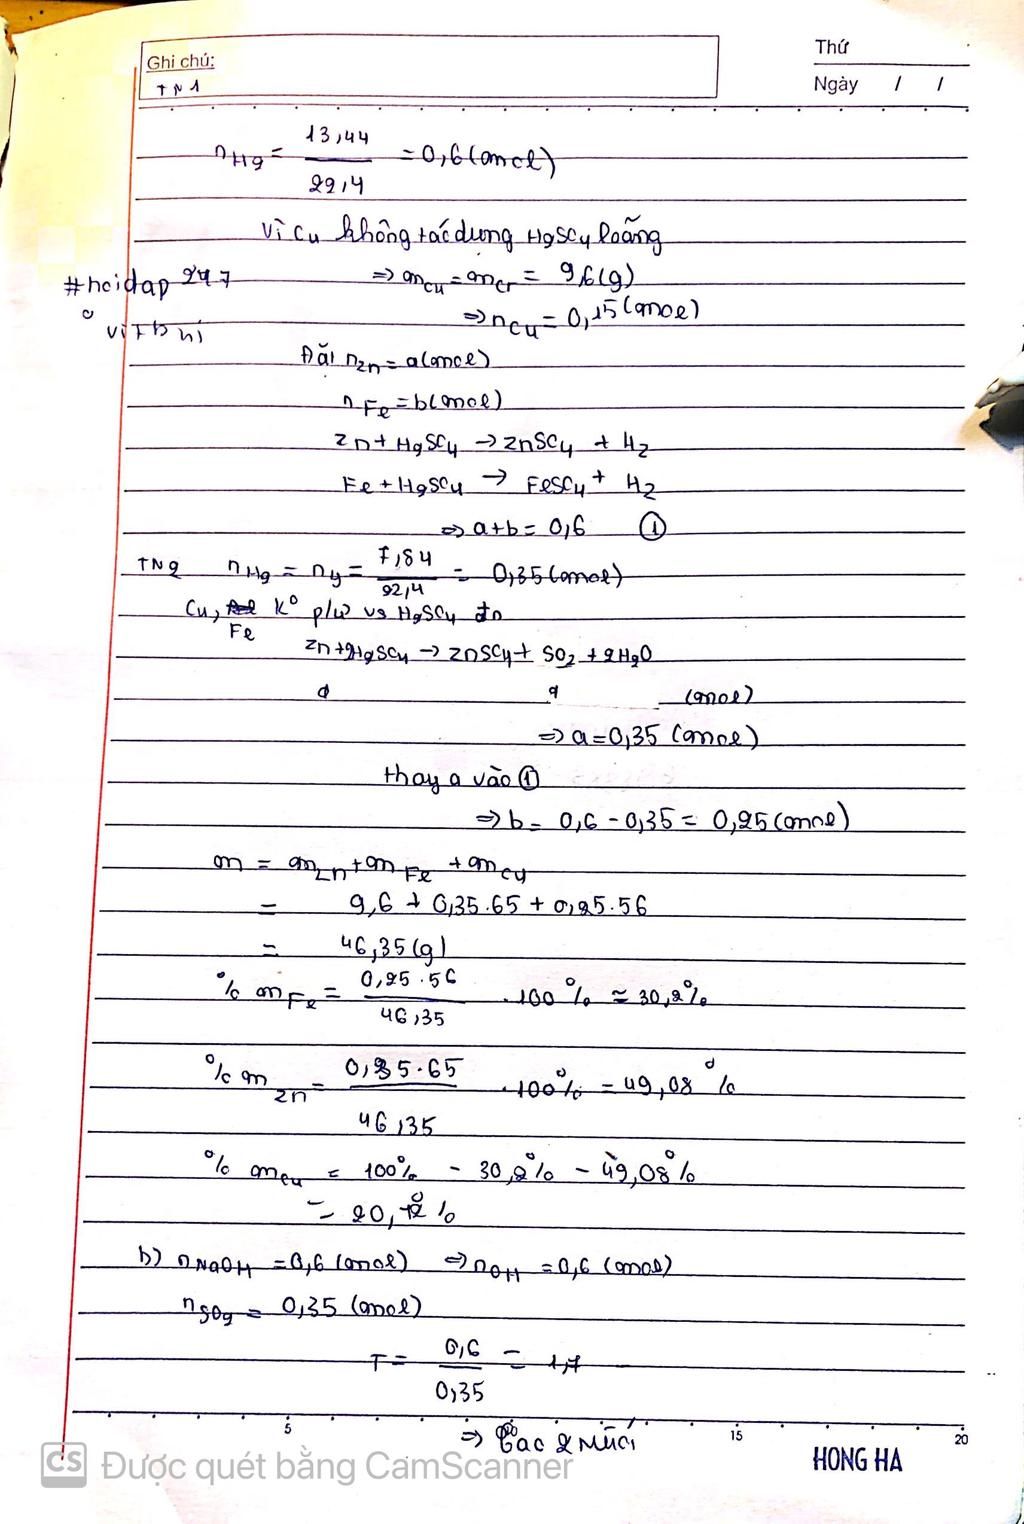 Ghi chú:
TN1
Thứ
Ngày / /
nH2 = 13,44 / 22,4 = 0,6 (mol)
Vì Cu không tác dụng H2SO4 loãng
#hoidap247
⇒ mCu = mcr = 9,6 (g)
⇒ nCu = 0,15 (mol)
Đặt nZn = a (mol)
nFe = b (mol)
Zn + H2SO4 → ZnSO4 + H2
Fe + H2SO4 → FeSO4 + H2
⇒ a+b = 0,6 ①
TN2 nH2 = ny = 7,84 / 22,4 = 0,35 (mol)
Cu, Fe K° p/ư vs H2SO4 đn
Zn + 2H2SO4 → ZnSO4 + SO2 + 2H2O
a a (mol)
⇒ a = 0,35 (mol)
thay a vào ①
⇒ b = 0,6 - 0,35 = 0,25 (mol)
m = mZn + mFe + mCu
= 9,6 + 0,35.65 + 0,25.56
= 46,35 (g)
% mFe = 0,25.56 / 46,35 .100% ≈ 30,2%
% mZn = 0,35.65 / 46,35 .100% = 49,08%
% mCu = 100% - 30,2% - 49,08%
= 20,72%
b) nNaOH = 0,6 (mol) ⇒ nOH = 0,6 (mol)
nSO2 = 0,35 (mol)
T = 0,6 / 0,35 = 1,7
⇒ Tạo 2 Muối
5 15 20
HONG HA
CS Được quét bằng CamScanner